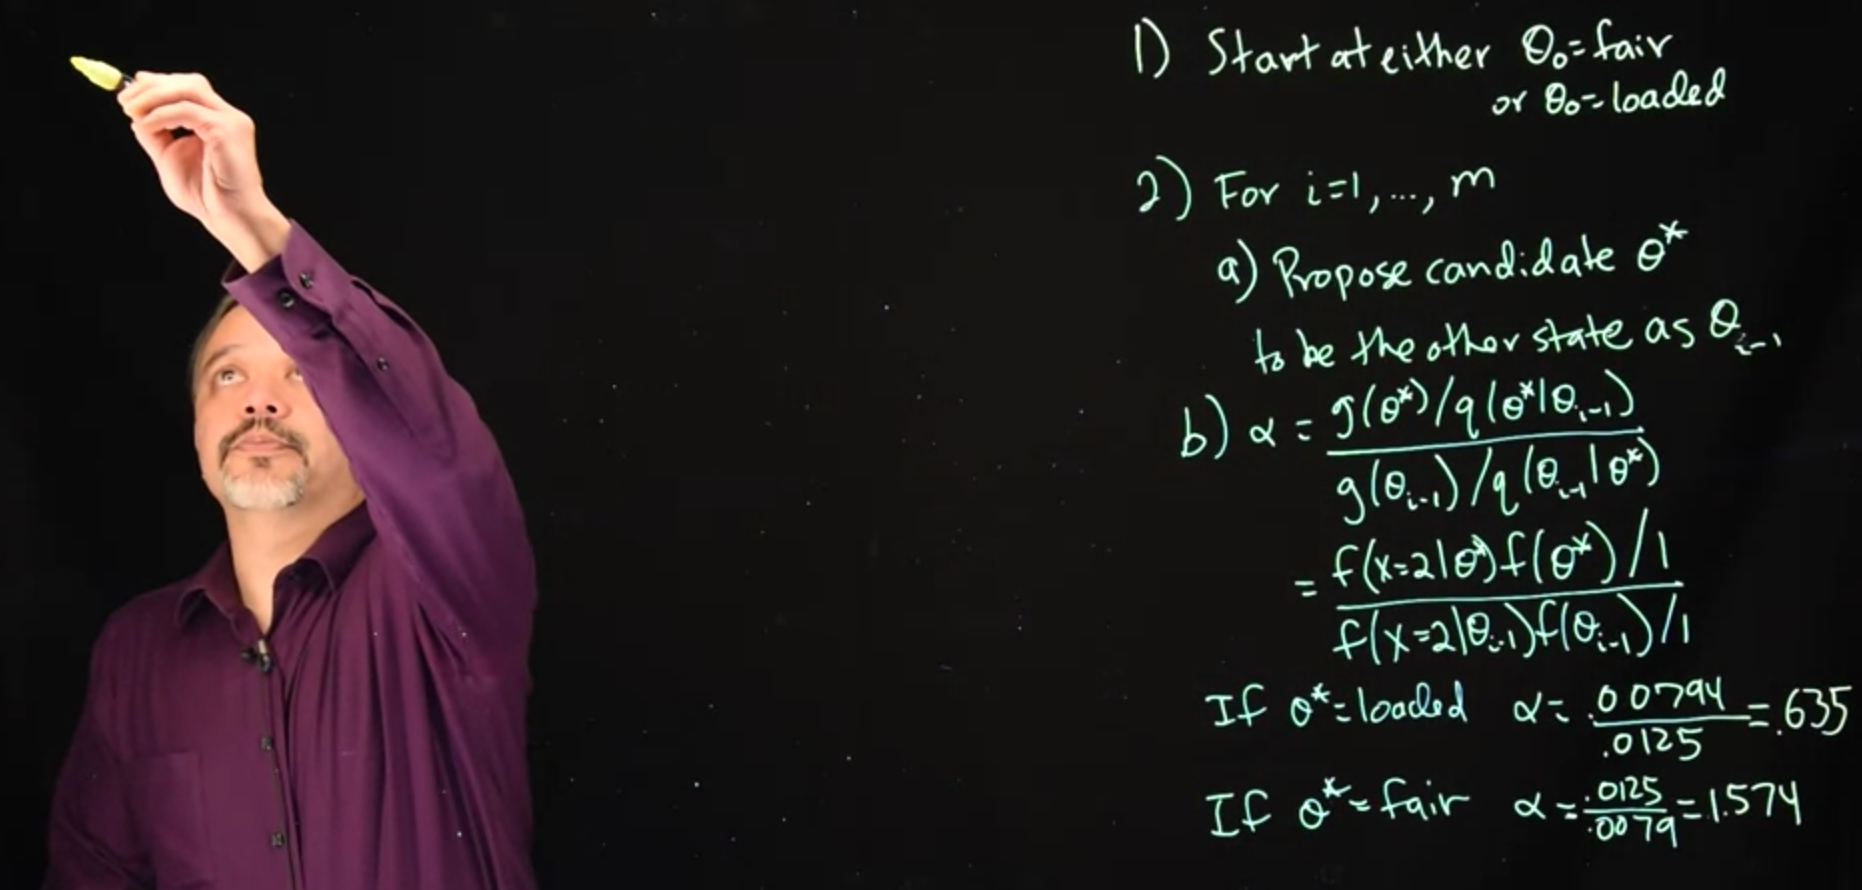 1) Start at either θ₀=fair
or θ₀=loaded
2) For i=1, ..., m
a) Propose candidate θ*
to be the other state as θᵢ₋₁
b) α = g(θ*)/q(θ*|θᵢ₋₁)
g(θᵢ₋₁)/q(θᵢ₋₁|θ*)
= f(x=2|θ*)f(θ*)/1
f(x=2|θᵢ₋₁)f(θᵢ₋₁)/1
If θ*=loaded α= .00794 = .635
.0125
If θ*=fair α = .0125 = 1.574
.0079